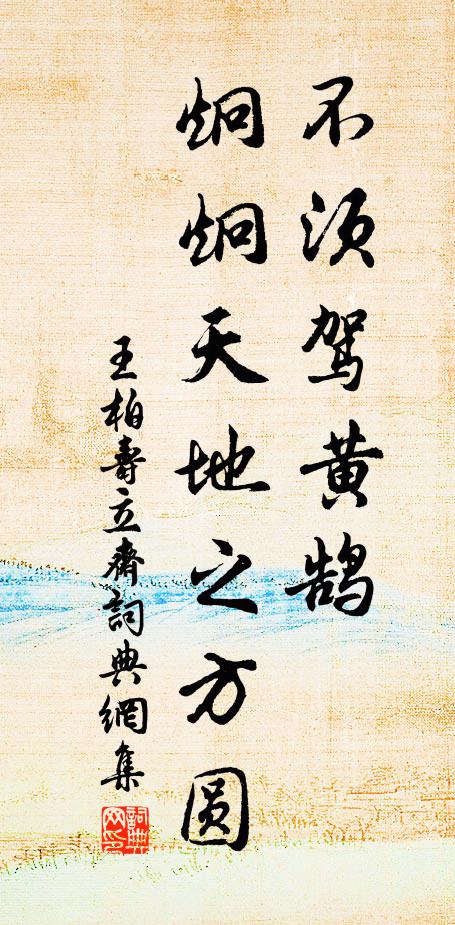 不须驾黄鹄
炯炯天地之方圆
王柏寿立斋詞典網集
詞典网印